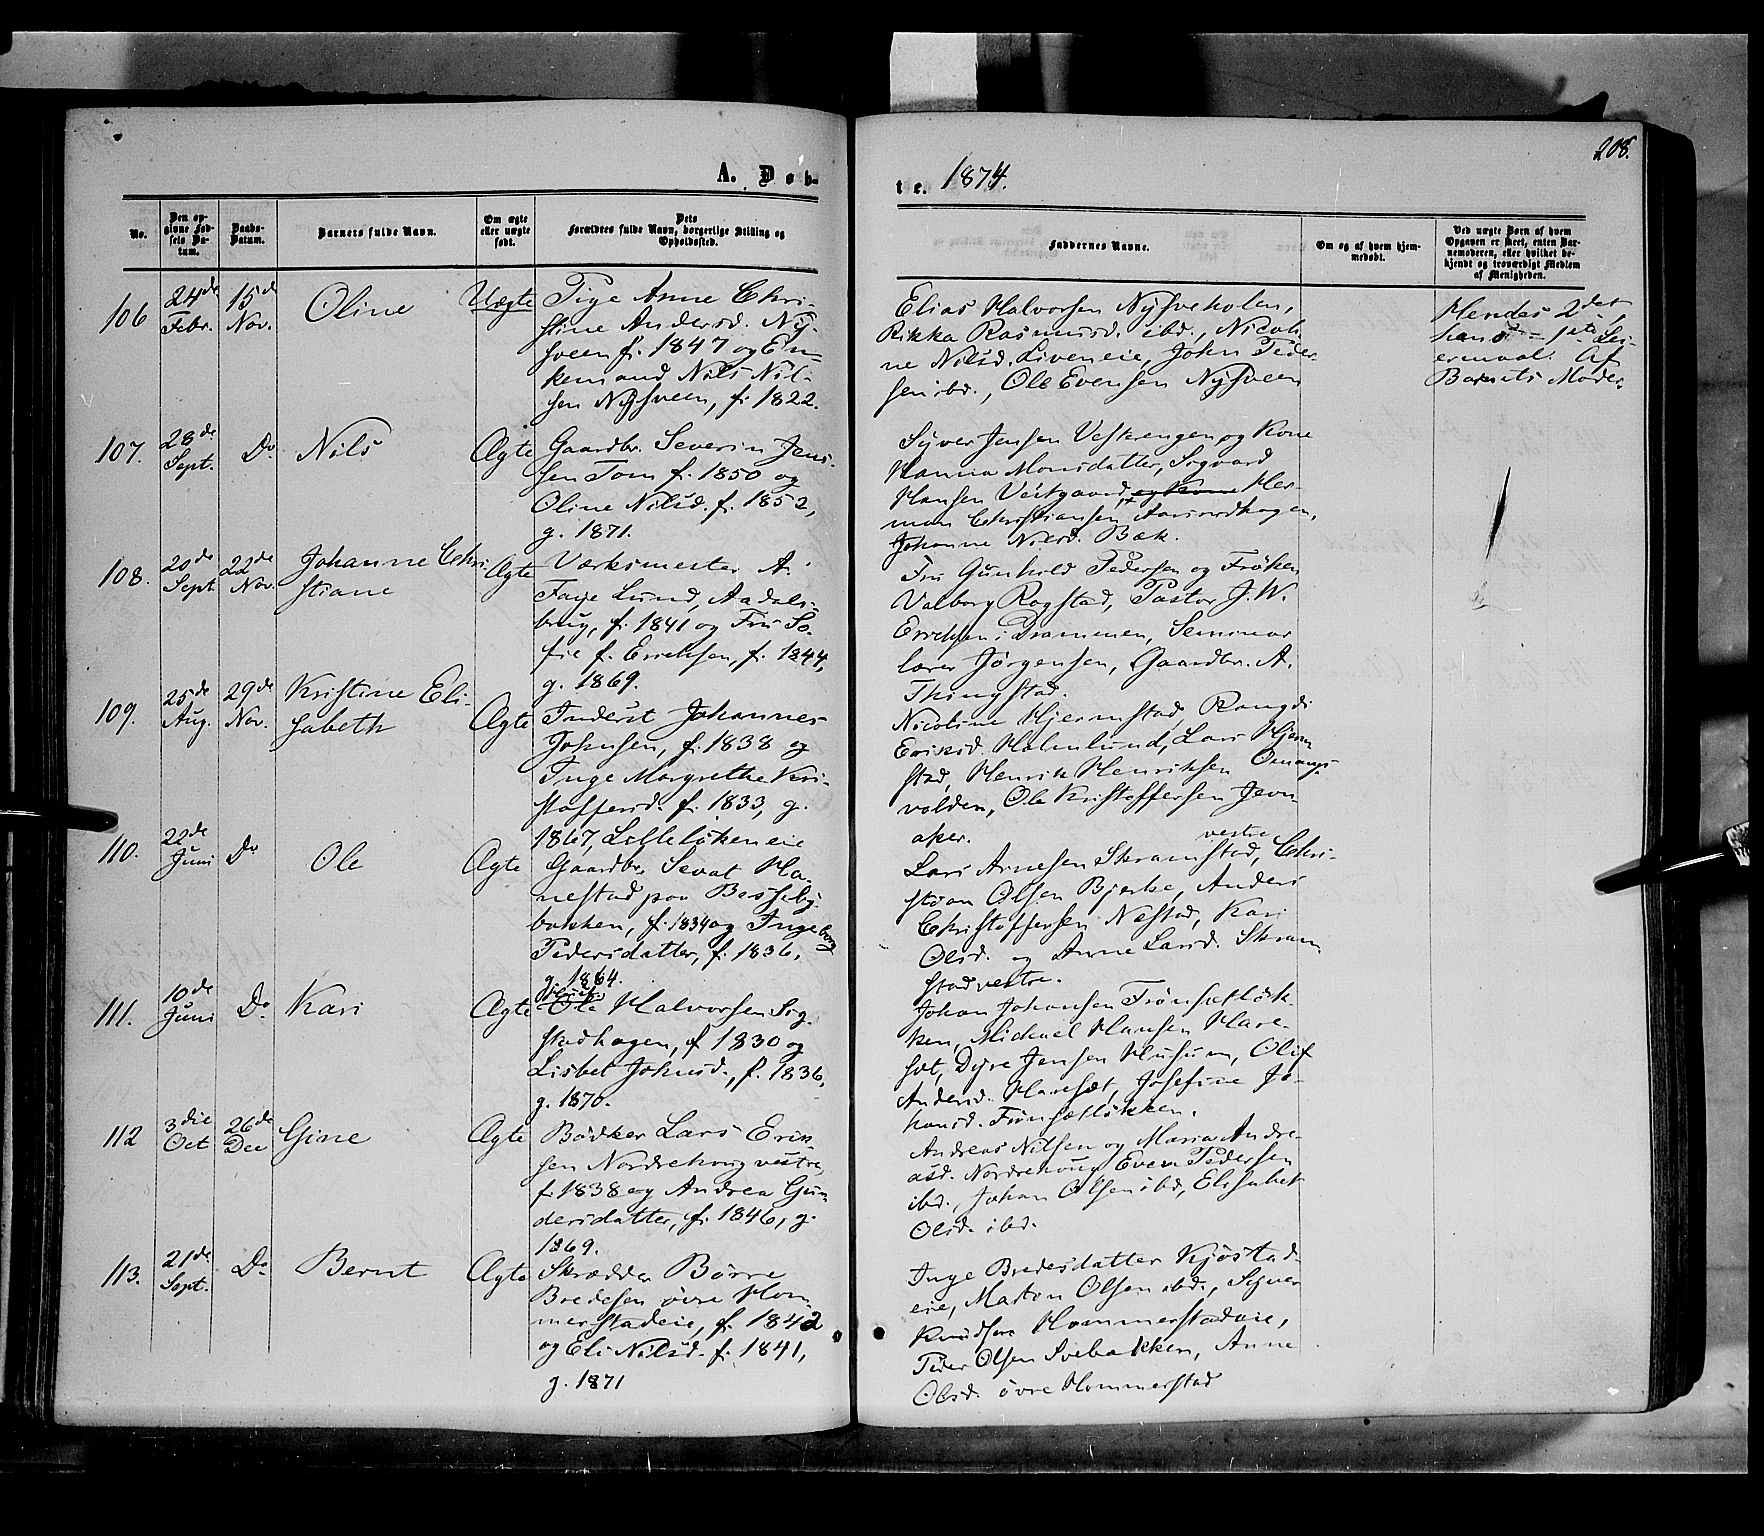 208.
A. Døb-
te. 1874.
No.
Den opgivne Fødsels Datum.
Daabs-Datum.
Barnets fulde Navn.
Om ægte eller uægte født.
Dets Forældres fulde Navn, borgerlige Stilling og Opholdssted.
Faddernes Navne.
Om og af hvem hjemmedøbt.
Ved uægte Børn af hvem Opgaven er skeet, enten Barnemoderen, eller hvilket bekjendt og troværdigt Medlem af Menigheden.
106 24de Febr. 15de Nov. Oline Uægte
Pige Anne Chri-
stine Andersd. Ny-
sveen f. 1847 og En-
kemand Nils Nil-
sen Nysveen, f. 1822.
Elias Halvorsen Nysveholen,
Rikka Rasmusd. ibd., Nicoli-
ne Nilsd. Liveneie, John Peder-
sen ibd., Ole Evensen Nysveen
Hendes 2det,
hans 1ste Lei-
ermaal. Af
Barnets Moder
107. 28de Sept. Do Nils Ægte
Gaardbr. Severin Jen-
sen Tom f. 1850 og
Oline Nilsd. f. 1852,
g. 1871.
Syver Jensen Vestrengen og Kone
Hanna Monsdatter, Sigvard
Hansen Vestgaard, og Kone Her-
man Christiansen
Johanne Nilsd. Bæk.
108. 20de Sept 22de Nov. Johanne Chri-
stiane Ægte
Værksmester A.
Faye Lund, Aadals-
brug, f. 1841 og Fru So-
fie f. Erichsen, f. 1844,
g. 1869.
Fru Gunhild Pedersen og Frøken
Valborg Rogstad, Pastor J. W.
Erichsen i Drammen, Seminar
lærer Jørgensen, Gaardbr. A.
Thingstad.
109. 25de Aug. 29de Nov. Kristine Eli-
sabeth Ægte
Inderst Johannes
Johnsen, f. 1838 og
Inge Margrethe Kri-
stoffersd. f. 1833, g.
1867, Lilleløkeneie
Nicoline Hjermstad, Rangdi
Eriksd. Holmlund, Lars Hjerm
stad, Henrik Henriksen Omangs-
volden, Ole Kristoffersen Jevn-
aker.
110. 22de Juni Do Ole Ægte
Gaardbr. Sevat Ha-
nestad paa Besseby-
bakken, f. 1834 og Ingeborg
Pedersdatter, f. 1836,
g. 1864.
vestre
Lars Arnesen Skramstad, Chri-
stian Olsen Bjerke, Anders
Christoffersen Næstad, Kari
Olsd. og Anne Larsd. Skram
stad vestre.
111. 10de Juni Do Kari Ægte
Ole Halvorsen Sog-
stadhagen, f 1830 og
Lisbet Johnsd., f. 1836,
g. 1870.
Johan Johansen Frønsetløk-
ken, Michael Hansen Hare-
set, Dyre Jensen Husum, Olif
Andersd. Hareset, Josefine Jo-
hansd. Frønsætløkken.
112 3die Oct 26de Dec Gine Ægte
Bødker Lars Erik
sen Nordrehoug vestre,
f. 1838 og Andrea Gun-
dersdatter, f. 1846, g.
1869.
Andreas Nilsen og Maria Andre-
asd. Nordrehoug Even Pedersen
ibd., Johan Olsen ibd, Elisabet
Olsd. ibd.
113. 21de Sept. Do Bernt Ægte
Skrædder Børre
Bredesen øvre Hom-
merstadeie, f. 1842
og Eli Nilsd. f. 1841,
g. 1871
Inge Bredesdatter Kjøstad-
eie, Marton Olsen ibd., Syver
Knudsen Hommerstadeie,
Peder Olsen Svebakken, Anne
Olsd. øvre Hommerstad